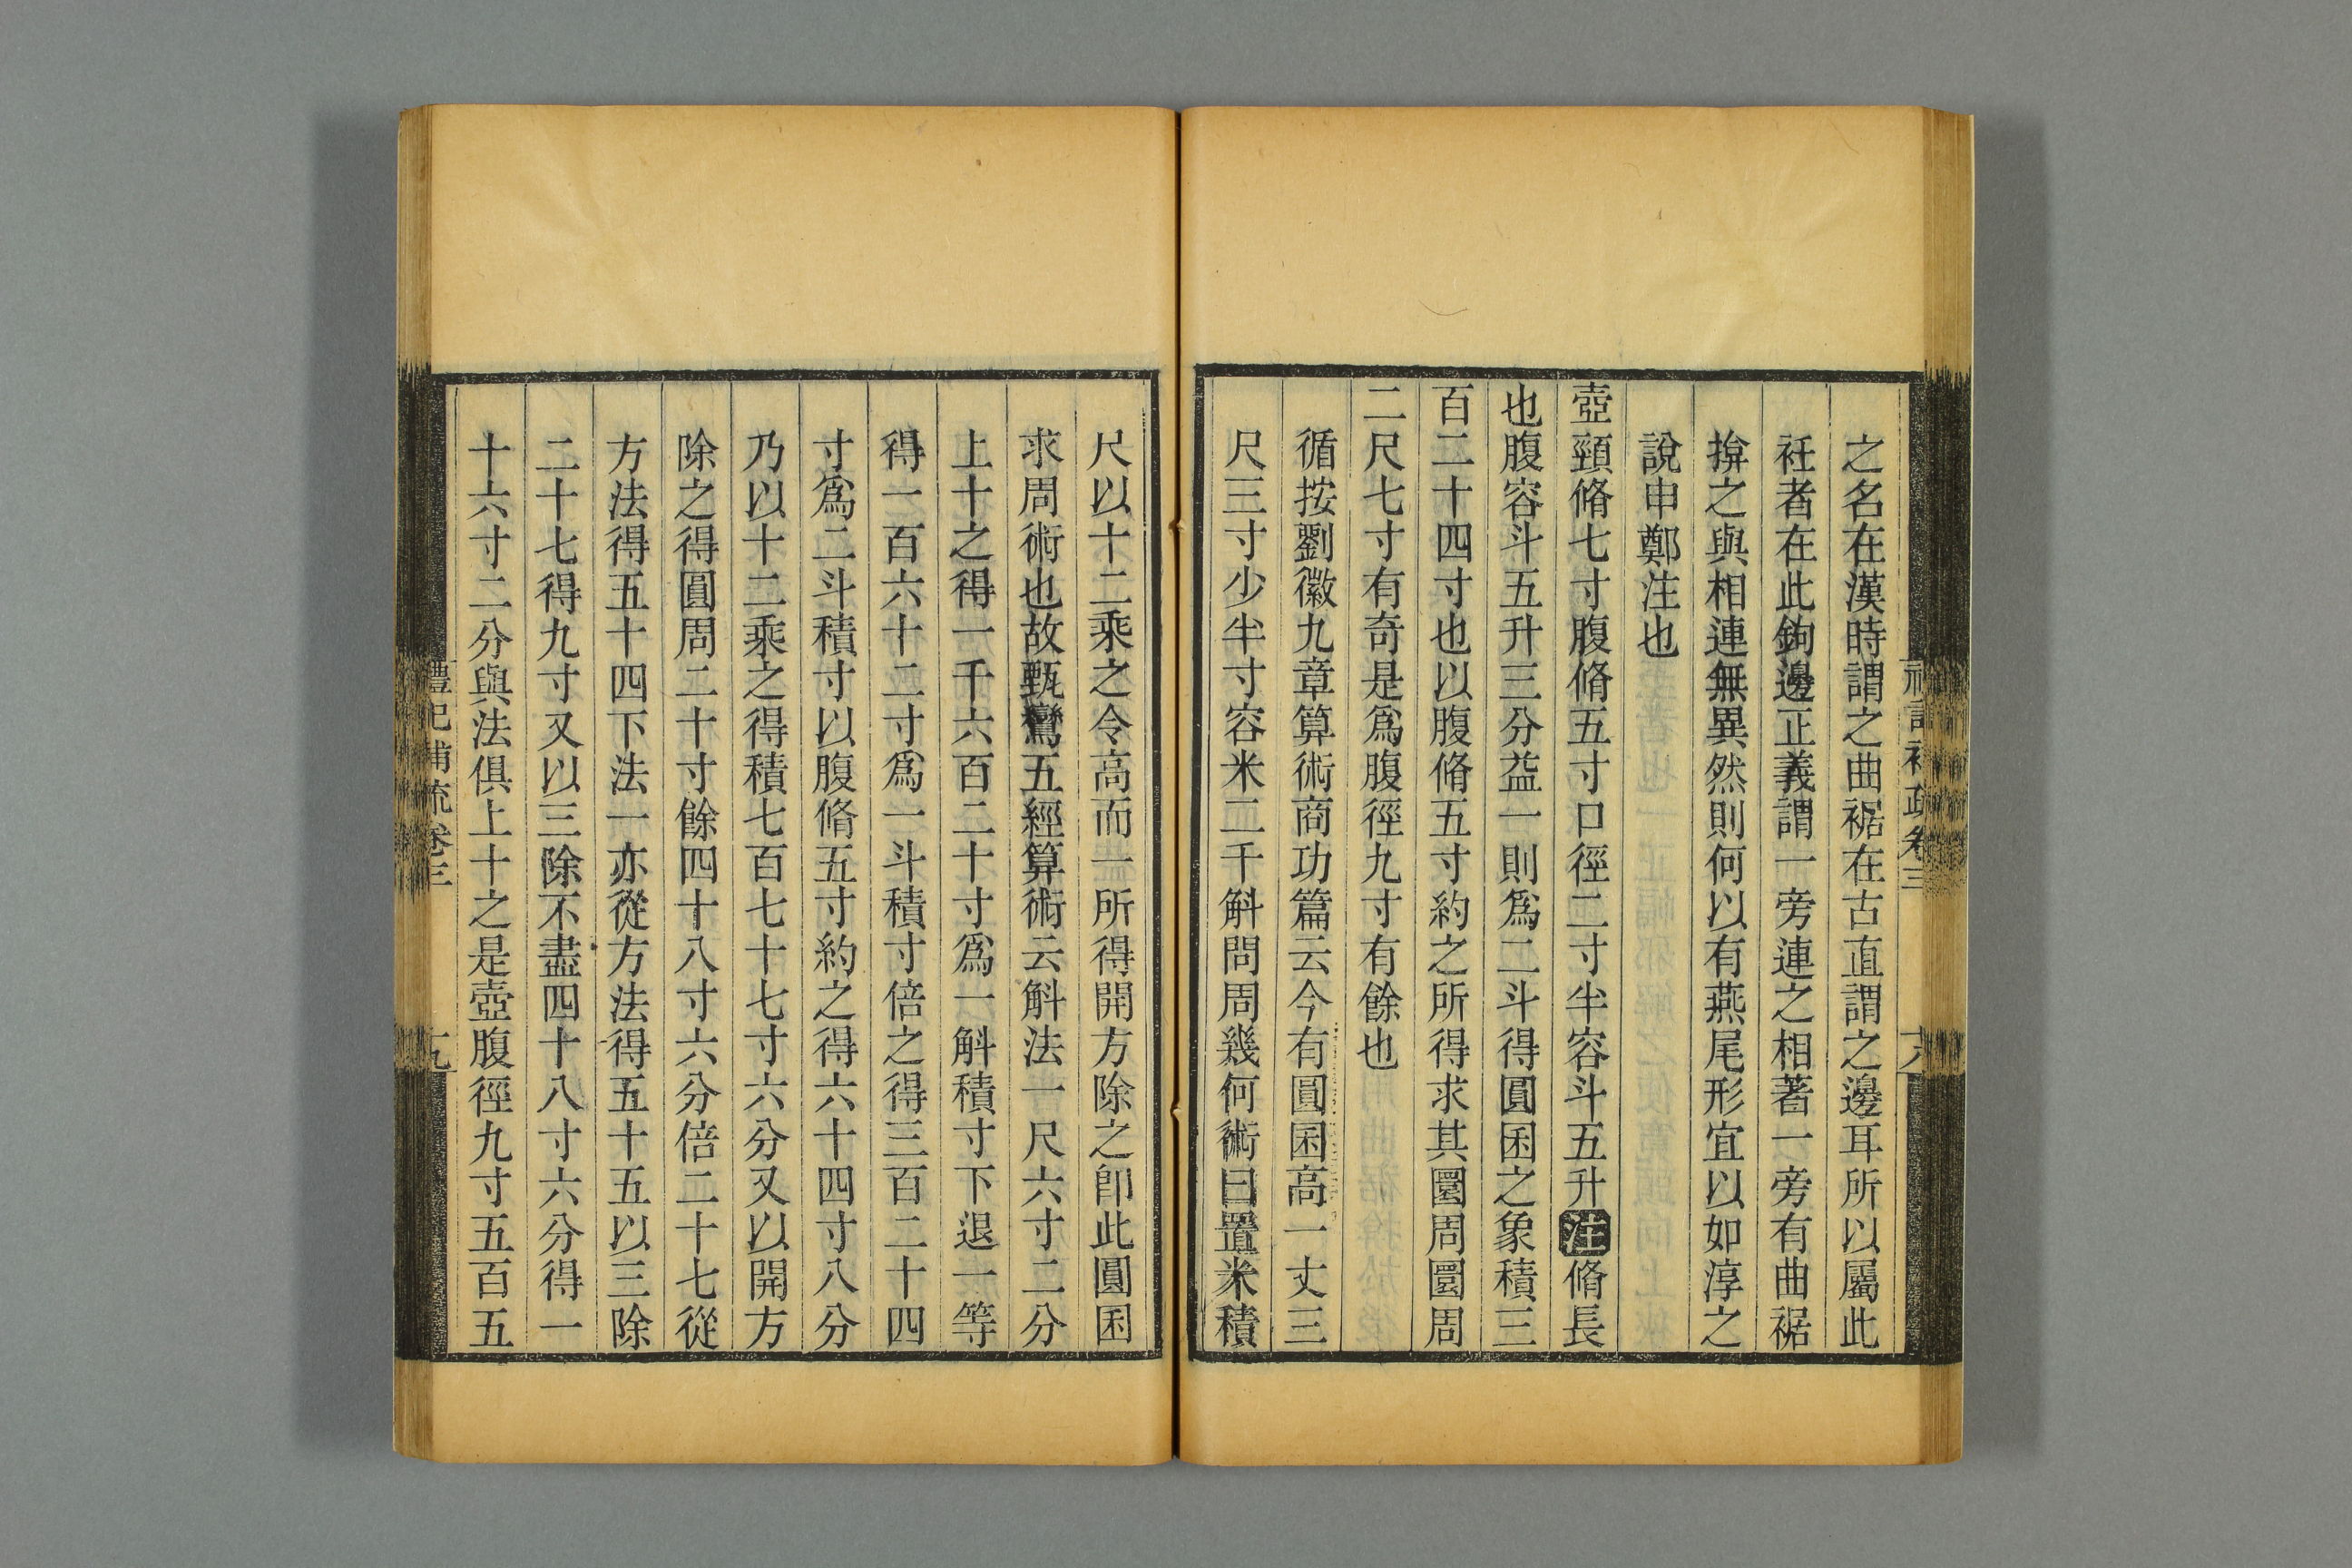 之名在漢時謂之曲裾在古直謂之邊耳所以屬此
衽者在此鉤邊正義謂一旁連之相著一旁有曲裾
揜之與相連無異然則何以有燕尾形宜以如淳之
說申鄭注也
壺頸脩七寸腹脩五寸口徑二寸半容斗五升注脩長
也腹容斗五升三分益一則爲二斗得圓囷之象積三
百二十四寸也以腹脩五寸約之所得求其圜周圜周
二尺七寸有奇是爲腹徑九寸有餘也
循按劉徽九章算術商功篇云今有圓囷高一丈三
尺三寸少半寸容米二千斛問周幾何術曰置米積
尺以十二乘之令高而一所得開方除之卽此圓囷
求周術也故甄鸞五經算術云斛法一尺六寸二分
上十之得一千六百二十寸爲一斛積寸下退一等
得一百六十二寸爲一斗積寸倍之得三百二十四
寸爲二斗積寸以腹脩五寸約之得六十四寸八分
乃以十二乘之得積七百七十七寸六分又以開方
除之得圓周二十寸餘四十八寸六分倍二十七從
方法得五十四下法一亦從方法得五十五以三除
二十七得九寸又以三除不盡四十八寸六分得一
十六寸二分與法俱上十之是壺腹徑九寸五百五
禮記補疏卷三
九